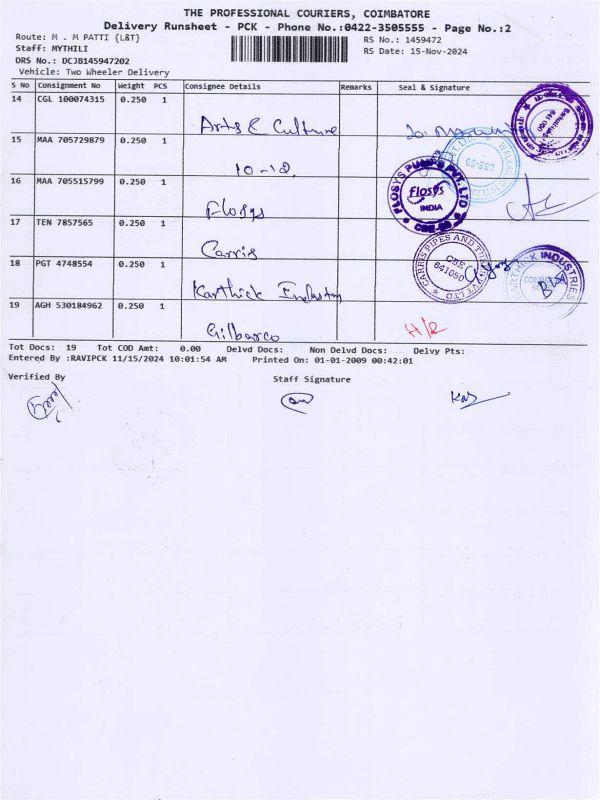 THE PROFESSIONAL COURIERS, COIMBATORE
Delivery Runsheet - PCK - Phone No.:0422-3505555 - Page No.:2
Route: M . M PATTI {L&T}
RS No.: 1459472
Staff: MYTHILI
RS Date: 15-Nov-2024
DRS No.: DCJB145947202
Vehicle: Two Wheeler Delivery
S No Consignment No Weight PCS Consignee Details Remarks Seal & Signature
14 CGL 100074315 0.250 1
Arts & Culture
15 MAA 705729879 0.250 1
10-12.
16 MAA 705515799 0.250 1
Flosys
FLOSYS PUMPS PVT. LTD
Flosys
INDIA
CBE-50
17 TEN 7857565 0.250 1
Carris
CARRIS PIPES AND TUBES PVT LTD
CBE
641050
18 PGT 4748554 0.250 1
Karthick Industry
KARTHICK INDUSTRIES
19 AGH 530184962 0.250 1
Gilbarco
H/R
Tot Docs: 19 Tot COD Amt: 0.00 Delvd Docs: Non Delvd Docs: Delvy Pts:
Entered By :RAVIPCK 11/15/2024 10:01:54 AM Printed On: 01-01-2009 00:42:01
Verified By
Staff Signature